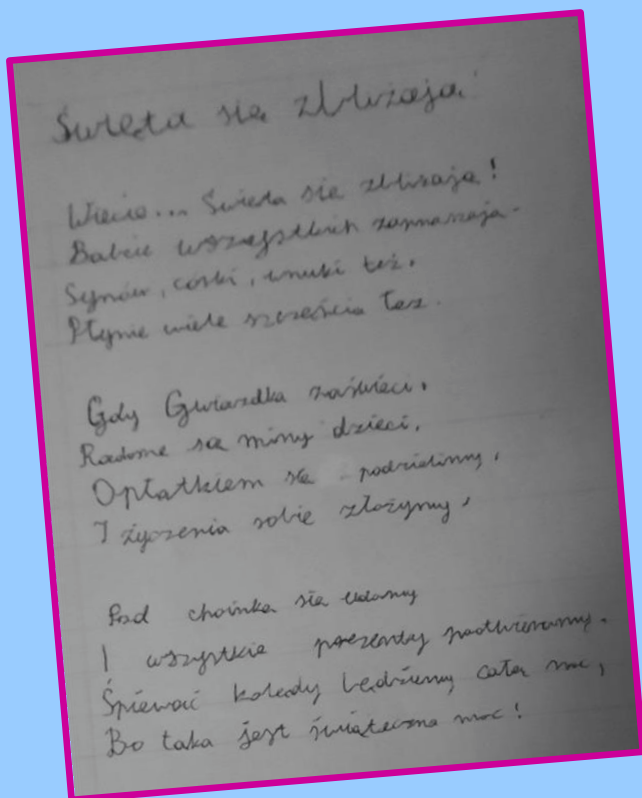 Święta się zbliżają
Wiecie... Święta się zbliżają!
Babcie wszystkich zapraszają.
Synów, córki, wnuki też.
Płynie wiele szczęścia łez.
Gdy Gwiazdka zaświeci.
Radosne są miny dzieci.
Opłatkiem się podzielimy,
I życzenia sobie złożymy,
Pod choinkę się udamy
I wszystkie prezenty pootwieramy.
Śpiewać kolędy będziemy całą noc,
Bo taka jest świąteczna moc!